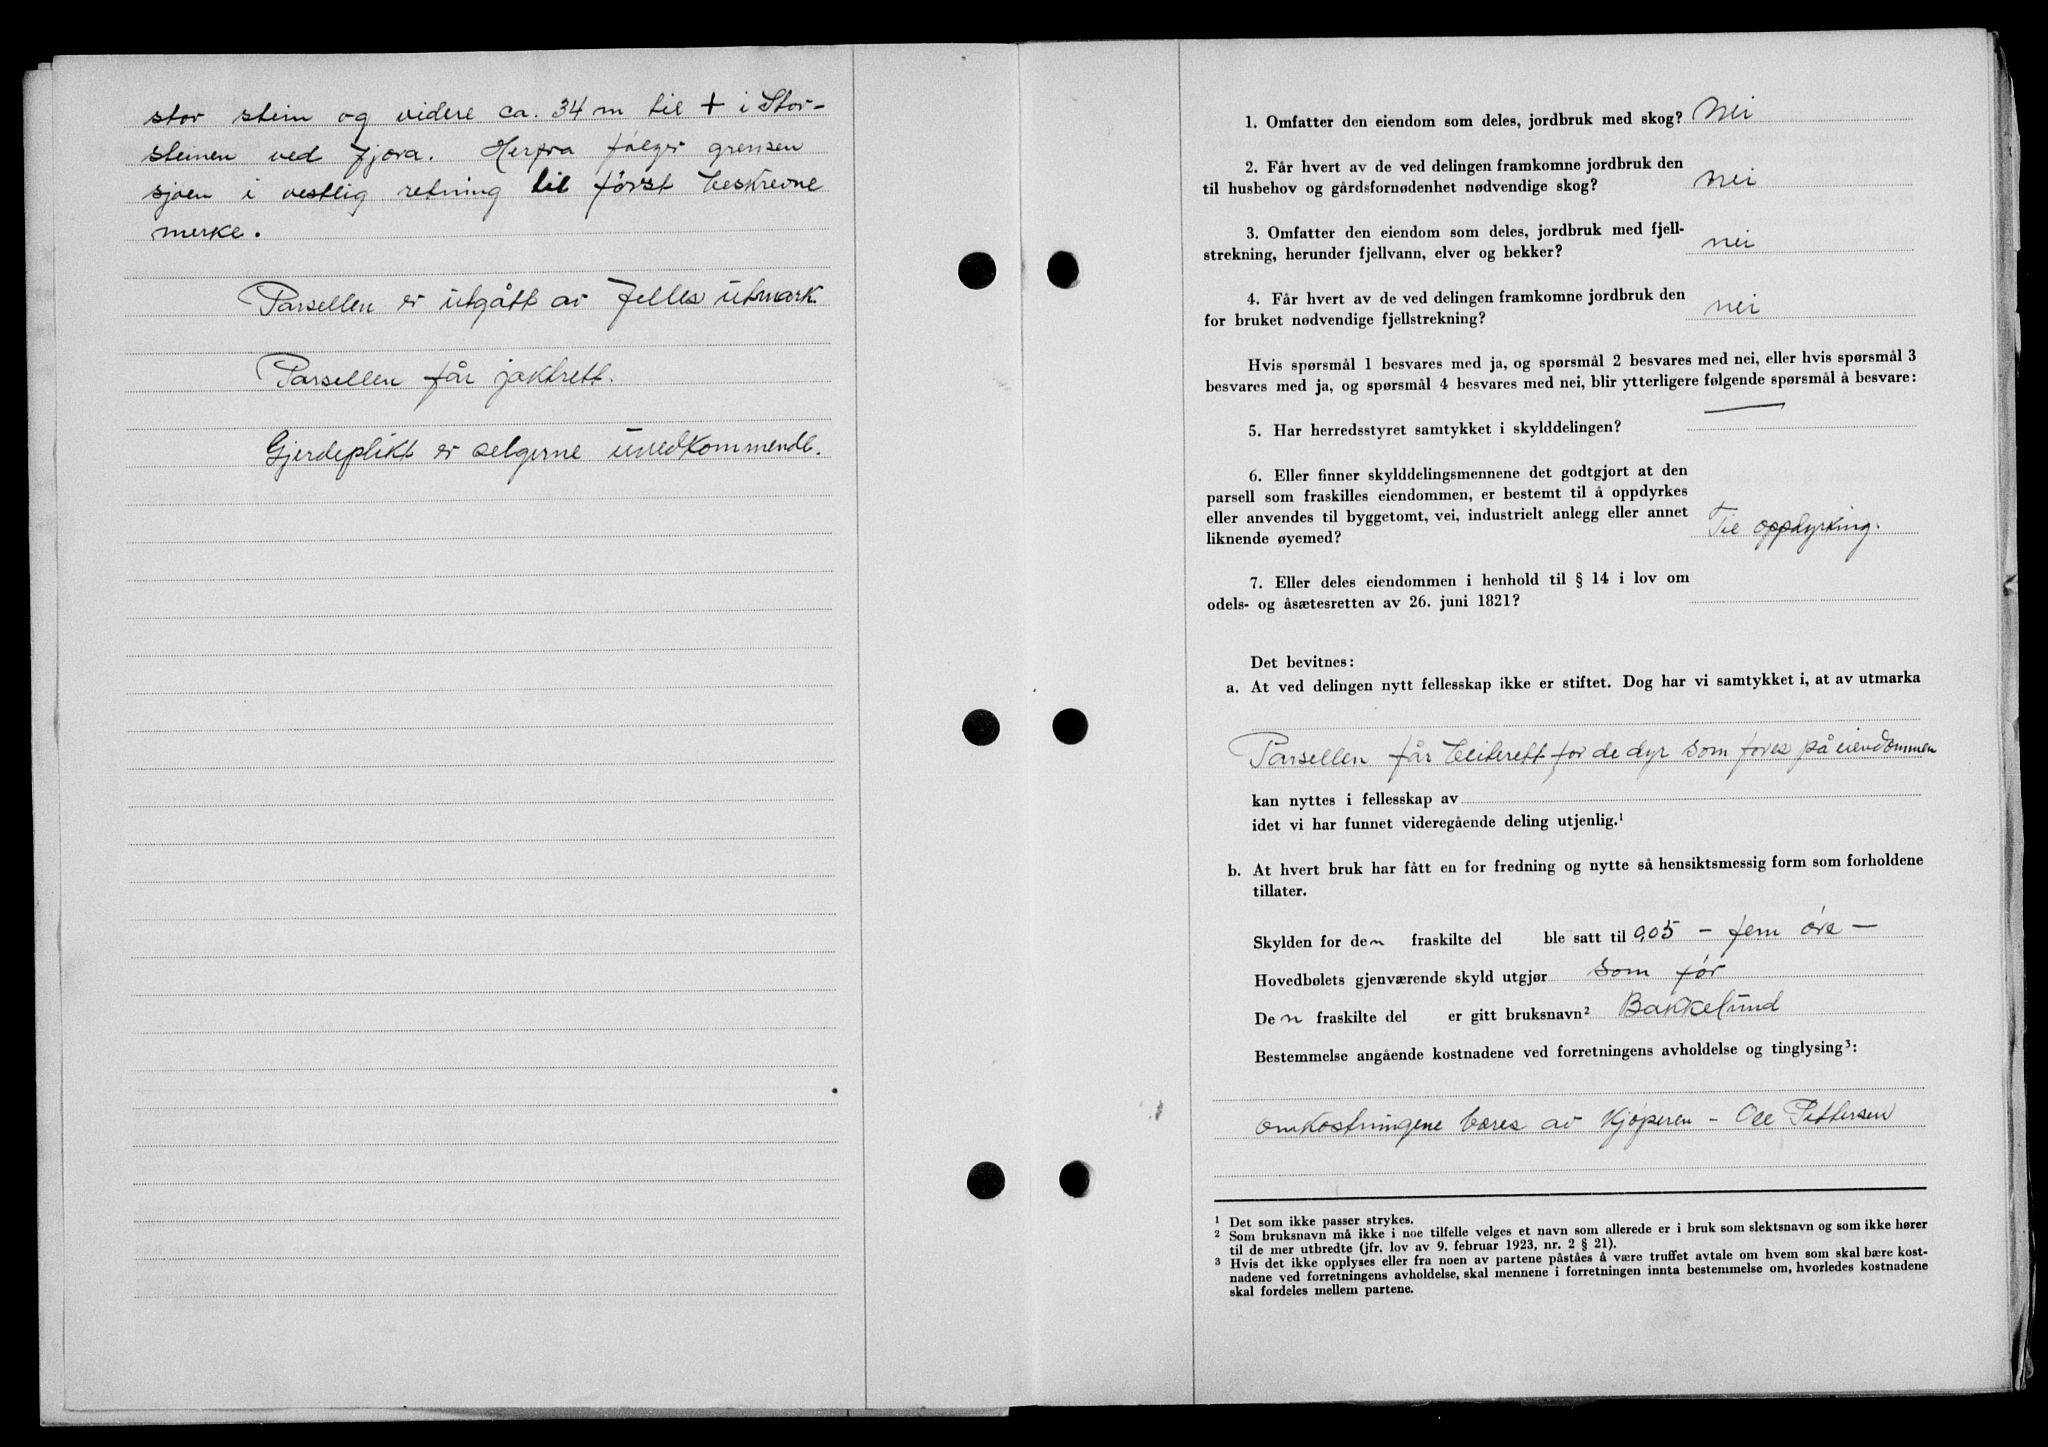 stor stein og videre ca. 34 m til + i Stor-
steinen ved fjæra. Herfra følger grensen
sjøen i vestlig retning til først beskrevne
merke.
Parsellen er utgått av felles utmark.
Parsellen får jaktrett.
Gjerdeplikt er selgerne uvedkommende.
1. Omfatter den eiendom som deles, jordbruk med skog? Nei
2. Får hvert av de ved delingen framkomne jordbruk den
til husbehov og gårdsfornødenhet nødvendige skog? Nei
3. Omfatter den eiendom som deles, jordbruk med fjell-
strekning, herunder fjellvann, elver og bekker? nei
4. Får hvert av de ved delingen framkomne jordbruk den
for bruket nødvendige fjellstrekning? nei
Hvis spørsmål 1 besvares med ja, og spørsmål 2 besvares med nei, eller hvis spørsmål 3
besvares med ja, og spørsmål 4 besvares med nei, blir ytterligere følgende spørsmål å besvare:
5. Har herredsstyret samtykket i skylddelingen?
6. Eller finner skylddelingsmennene det godtgjort at den
parsell som fraskilles eiendommen, er bestemt til å oppdyrkes
eller anvendes til byggetomt, vei, industrielt anlegg eller annet
liknende øyemed? Til oppdyrking.
7. Eller deles eiendommen i henhold til § 14 i lov om
odels- og åsætesretten av 26. juni 1821?
Det bevitnes:
a. At ved delingen nytt fellesskap ikke er stiftet. Dog har vi samtykket i, at av utmarka
Parsellen får beiterett for de dyr som fores på eiendommen
kan nyttes i fellesskap av
idet vi har funnet videregående deling utjenlig.¹
b. At hvert bruk har fått en for fredning og nytte så hensiktsmessig form som forholdene
tillater.
Skylden for den fraskilte del ble satt til 0,05 - fem øre -
Hovedbølets gjenværende skyld utgjør som før
Den fraskilte del er gitt bruksnavn² Bakkelund
Bestemmelse angående kostnadene ved forretningens avholdelse og tinglysing³:
omkostningene bæres av kjøperen - Ole Pettersen
¹ Det som ikke passer strykes.
² Som bruksnavn må ikke i noe tilfelle velges et navn som allerede er i bruk som slektsnavn og som ikke hører
til de mer utbredte (jfr. lov av 9. februar 1923, nr. 2 § 21).
³ Hvis det ikke opplyses eller fra noen av partene påståes å være truffet avtale om hvem som skal bære kost-
nadene ved forretningens avholdelse, skal mennene i forretningen innta bestemmelse om, hvorledes kostnadene
skal fordeles mellem partene.